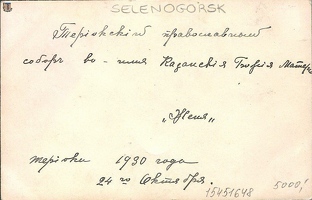 SELENOGORSK
Терiокскiй православный
соборъ во-имя Казанскiя Божiя Матери
"Женя"
терiоки 1930 года
24 го Октября.
15451648
5000,-